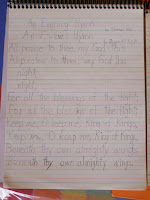 An Evening Hymn
An Evening Hymn
All praise to thee, my God this
All praise to thee, my God this
night,
night,
For all the blessings of the light;
For all the blessings of the light;
Keep me, O keep me, King of kings,
Keep me, O keep me, King of kings,
Beneath thy own almighty wings.
Beneath thy own almighty wings.